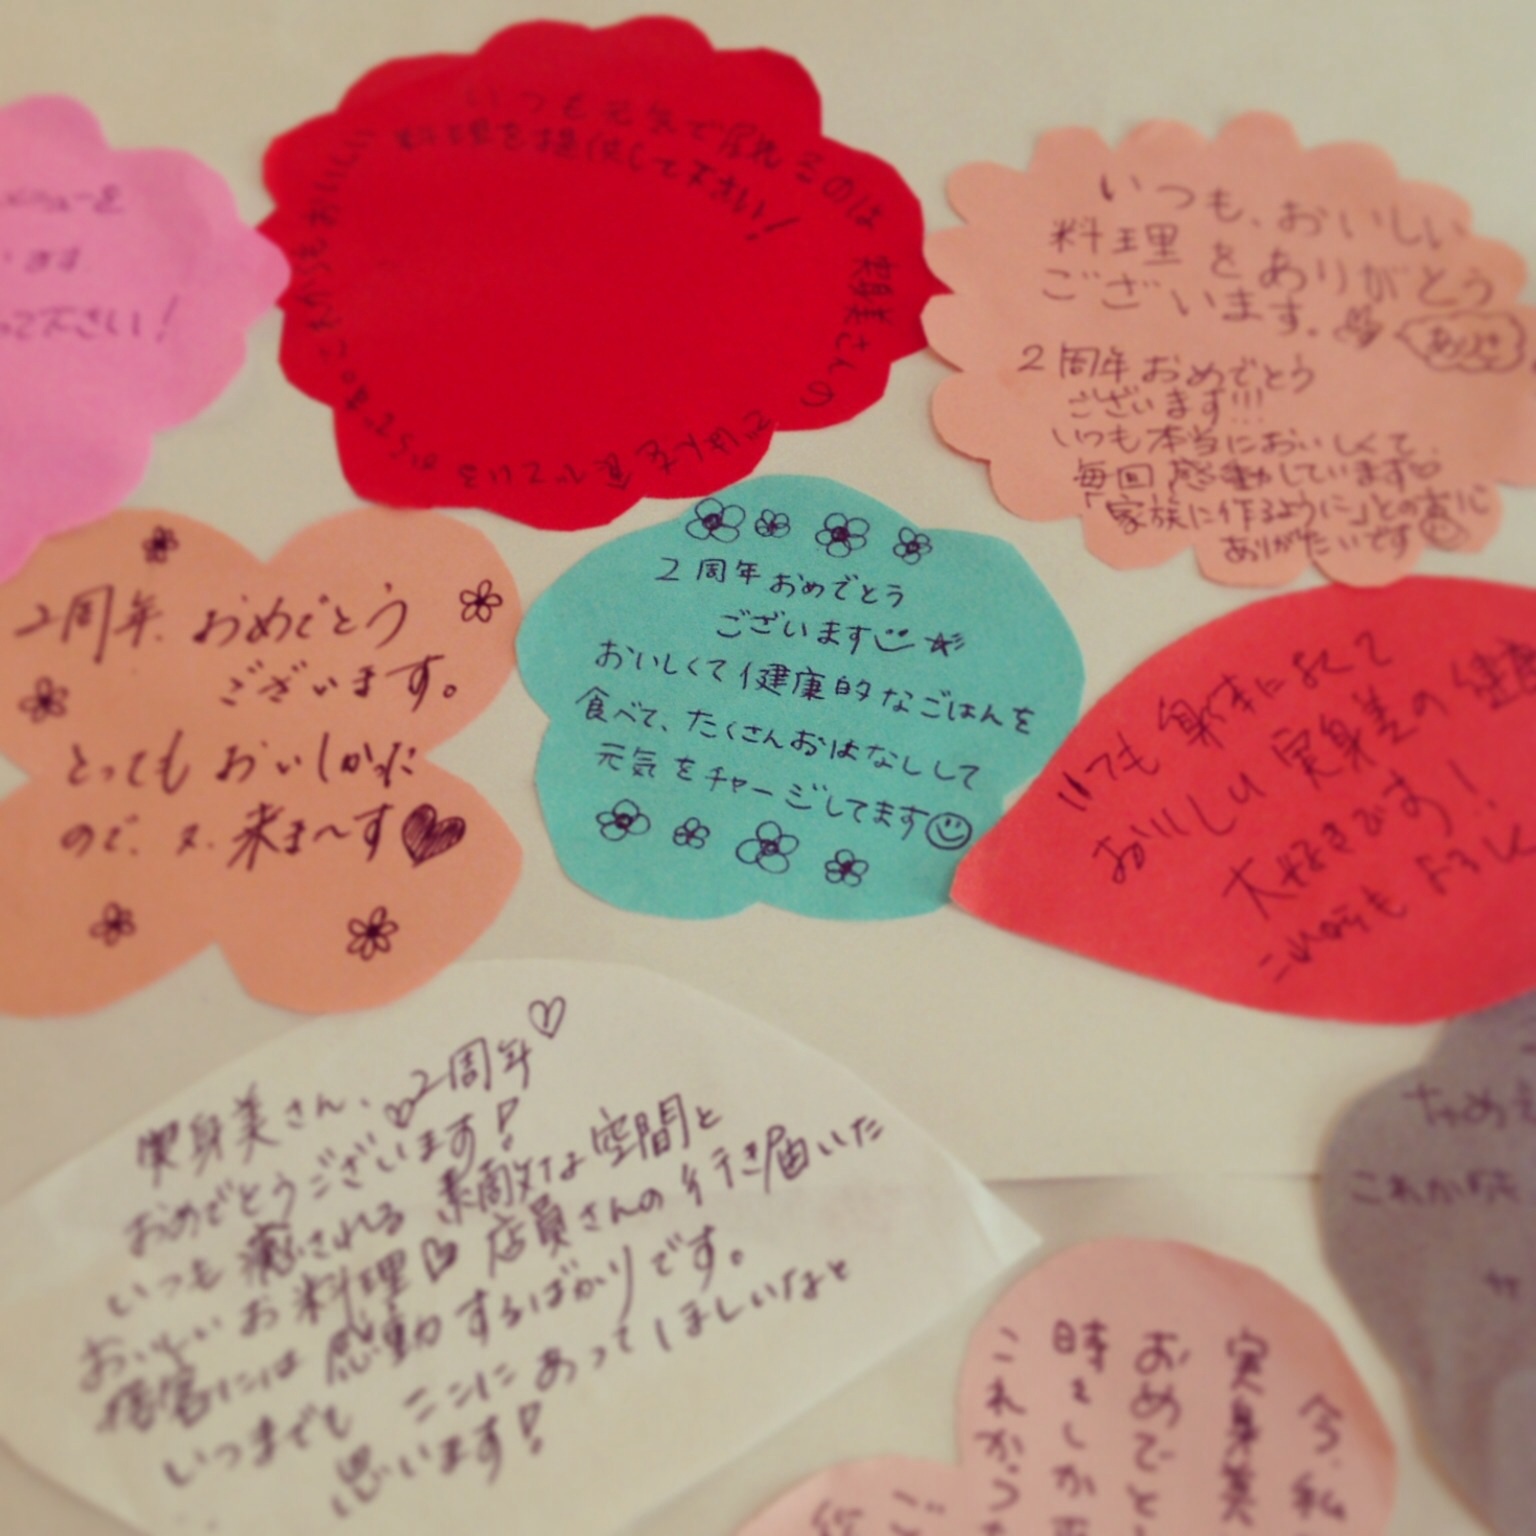 メニューを
います
って下さい！
いつも元気で居られるのは
実身美さんの
ごはんを食べている
からですね。これからもおいしい
料理を提供して下さい！
いつも、おいしい
料理をありがとう
ございます。
2周年おめでとう
ございます!!!
いつも本当においしくて、
毎回感動しています♡
「家族に作るように」との真心
ありがたいです
2周年おめでとう
ございます。
とってもおいしかった
ので、又、来ま〜す♥
2周年おめでとう
ございます☆
おいしくて健康的なごはんを
食べて、たくさんおはなしして
元気をチャージしてます☺
いつも身体によくて
おいしい実身美の健康
大好きです！
これからもよろしく
実身美さん、♡2周年♡
おめでとうございます！
いつも癒される素敵な空間と
おいしいお料理♡店員さんの行き届いた
接客には感動するばかりです。
いつまでもここにあってほしいなと
思います！
これから
今、私
実身美
おめでと
時々しか
これから